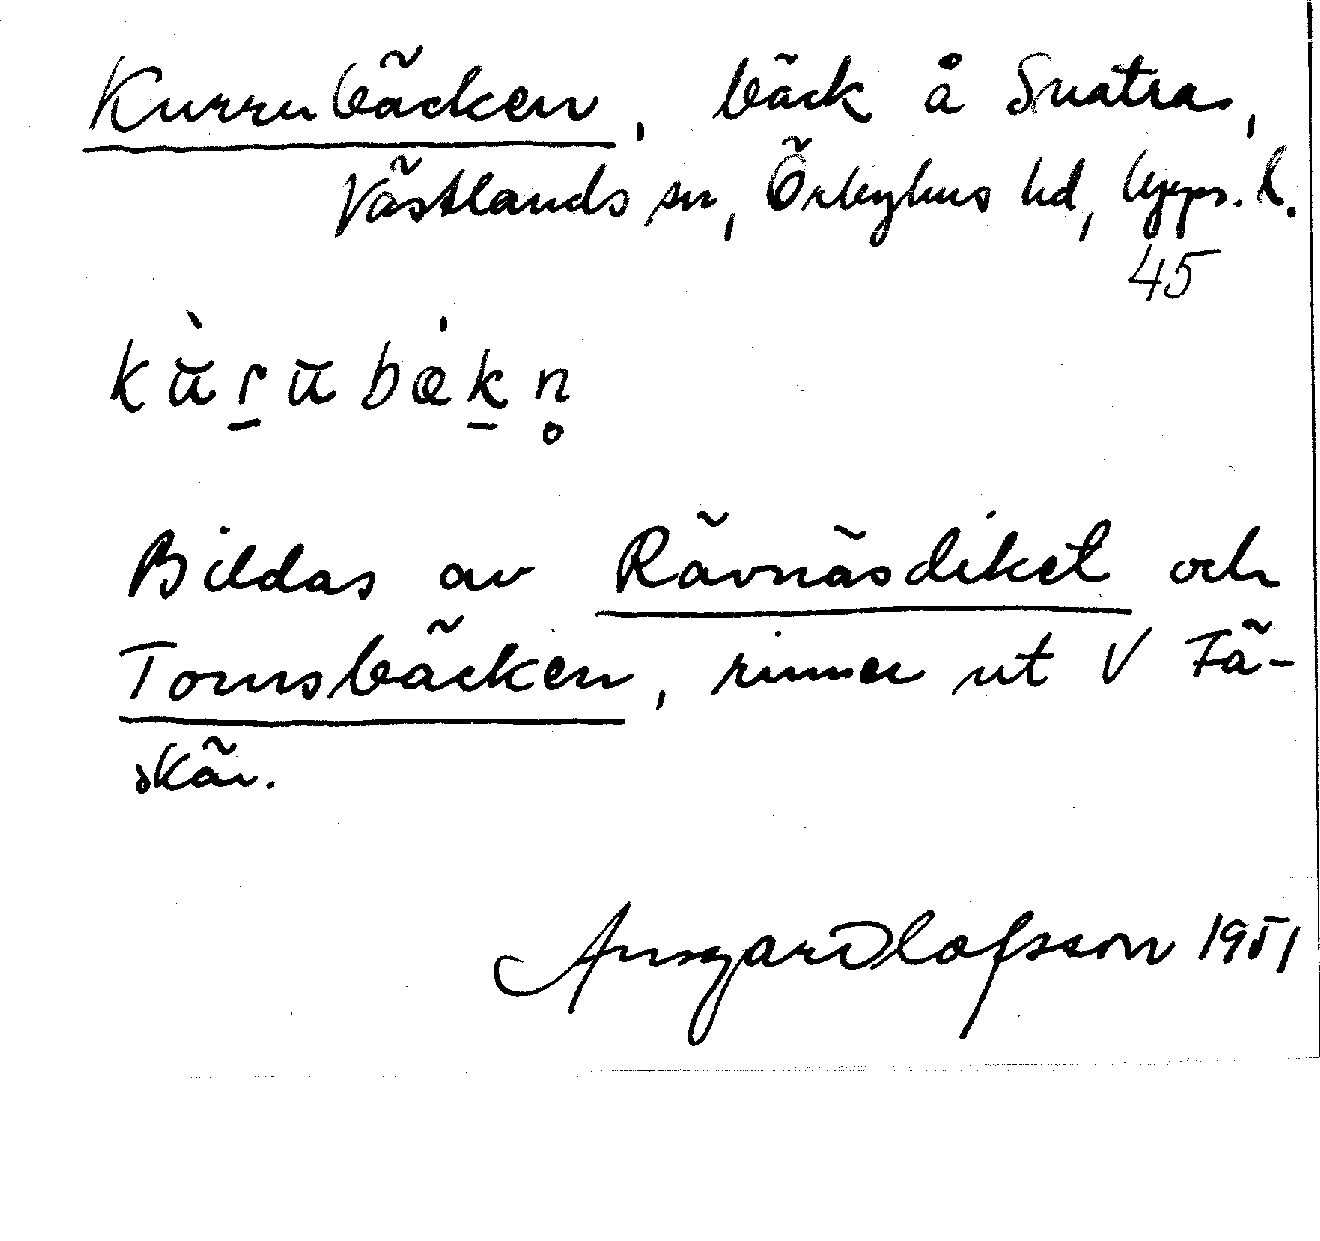 Kurrubäcken, bäck å Snatra,
Västlands sn, Örbyhus hd, Upps. l.
45
kùrubækn̥
Bildas av Rävnäsdiket och
Tomsbäcken, rinner ut V Fä-
skär.
Ansgar Olofsson 1951